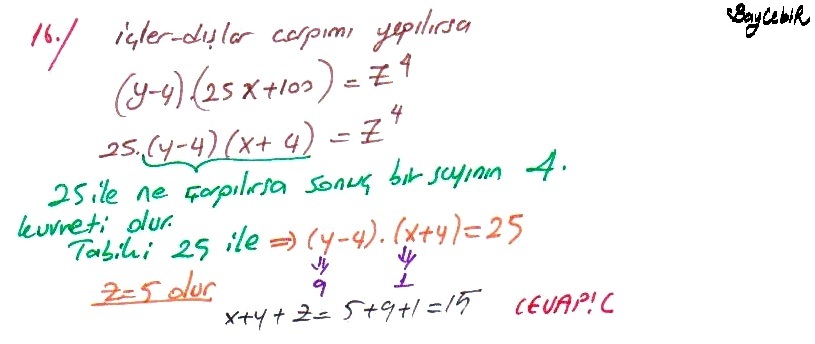 BayCebiR
16./ içler-dışlar çarpımı yapılırsa
(y-4).(25x+100) = Z⁴
25.(y-4)(x+4) = Z⁴
25 ile ne çarpılırsa sonuç bir sayının 4.
kuvveti olur.
Tabiki 25 ile ⇒ (y-4).(x+4)=25
9 1
Z=5 olur
x+y+z= 5+9+1=15 CEVAP: C